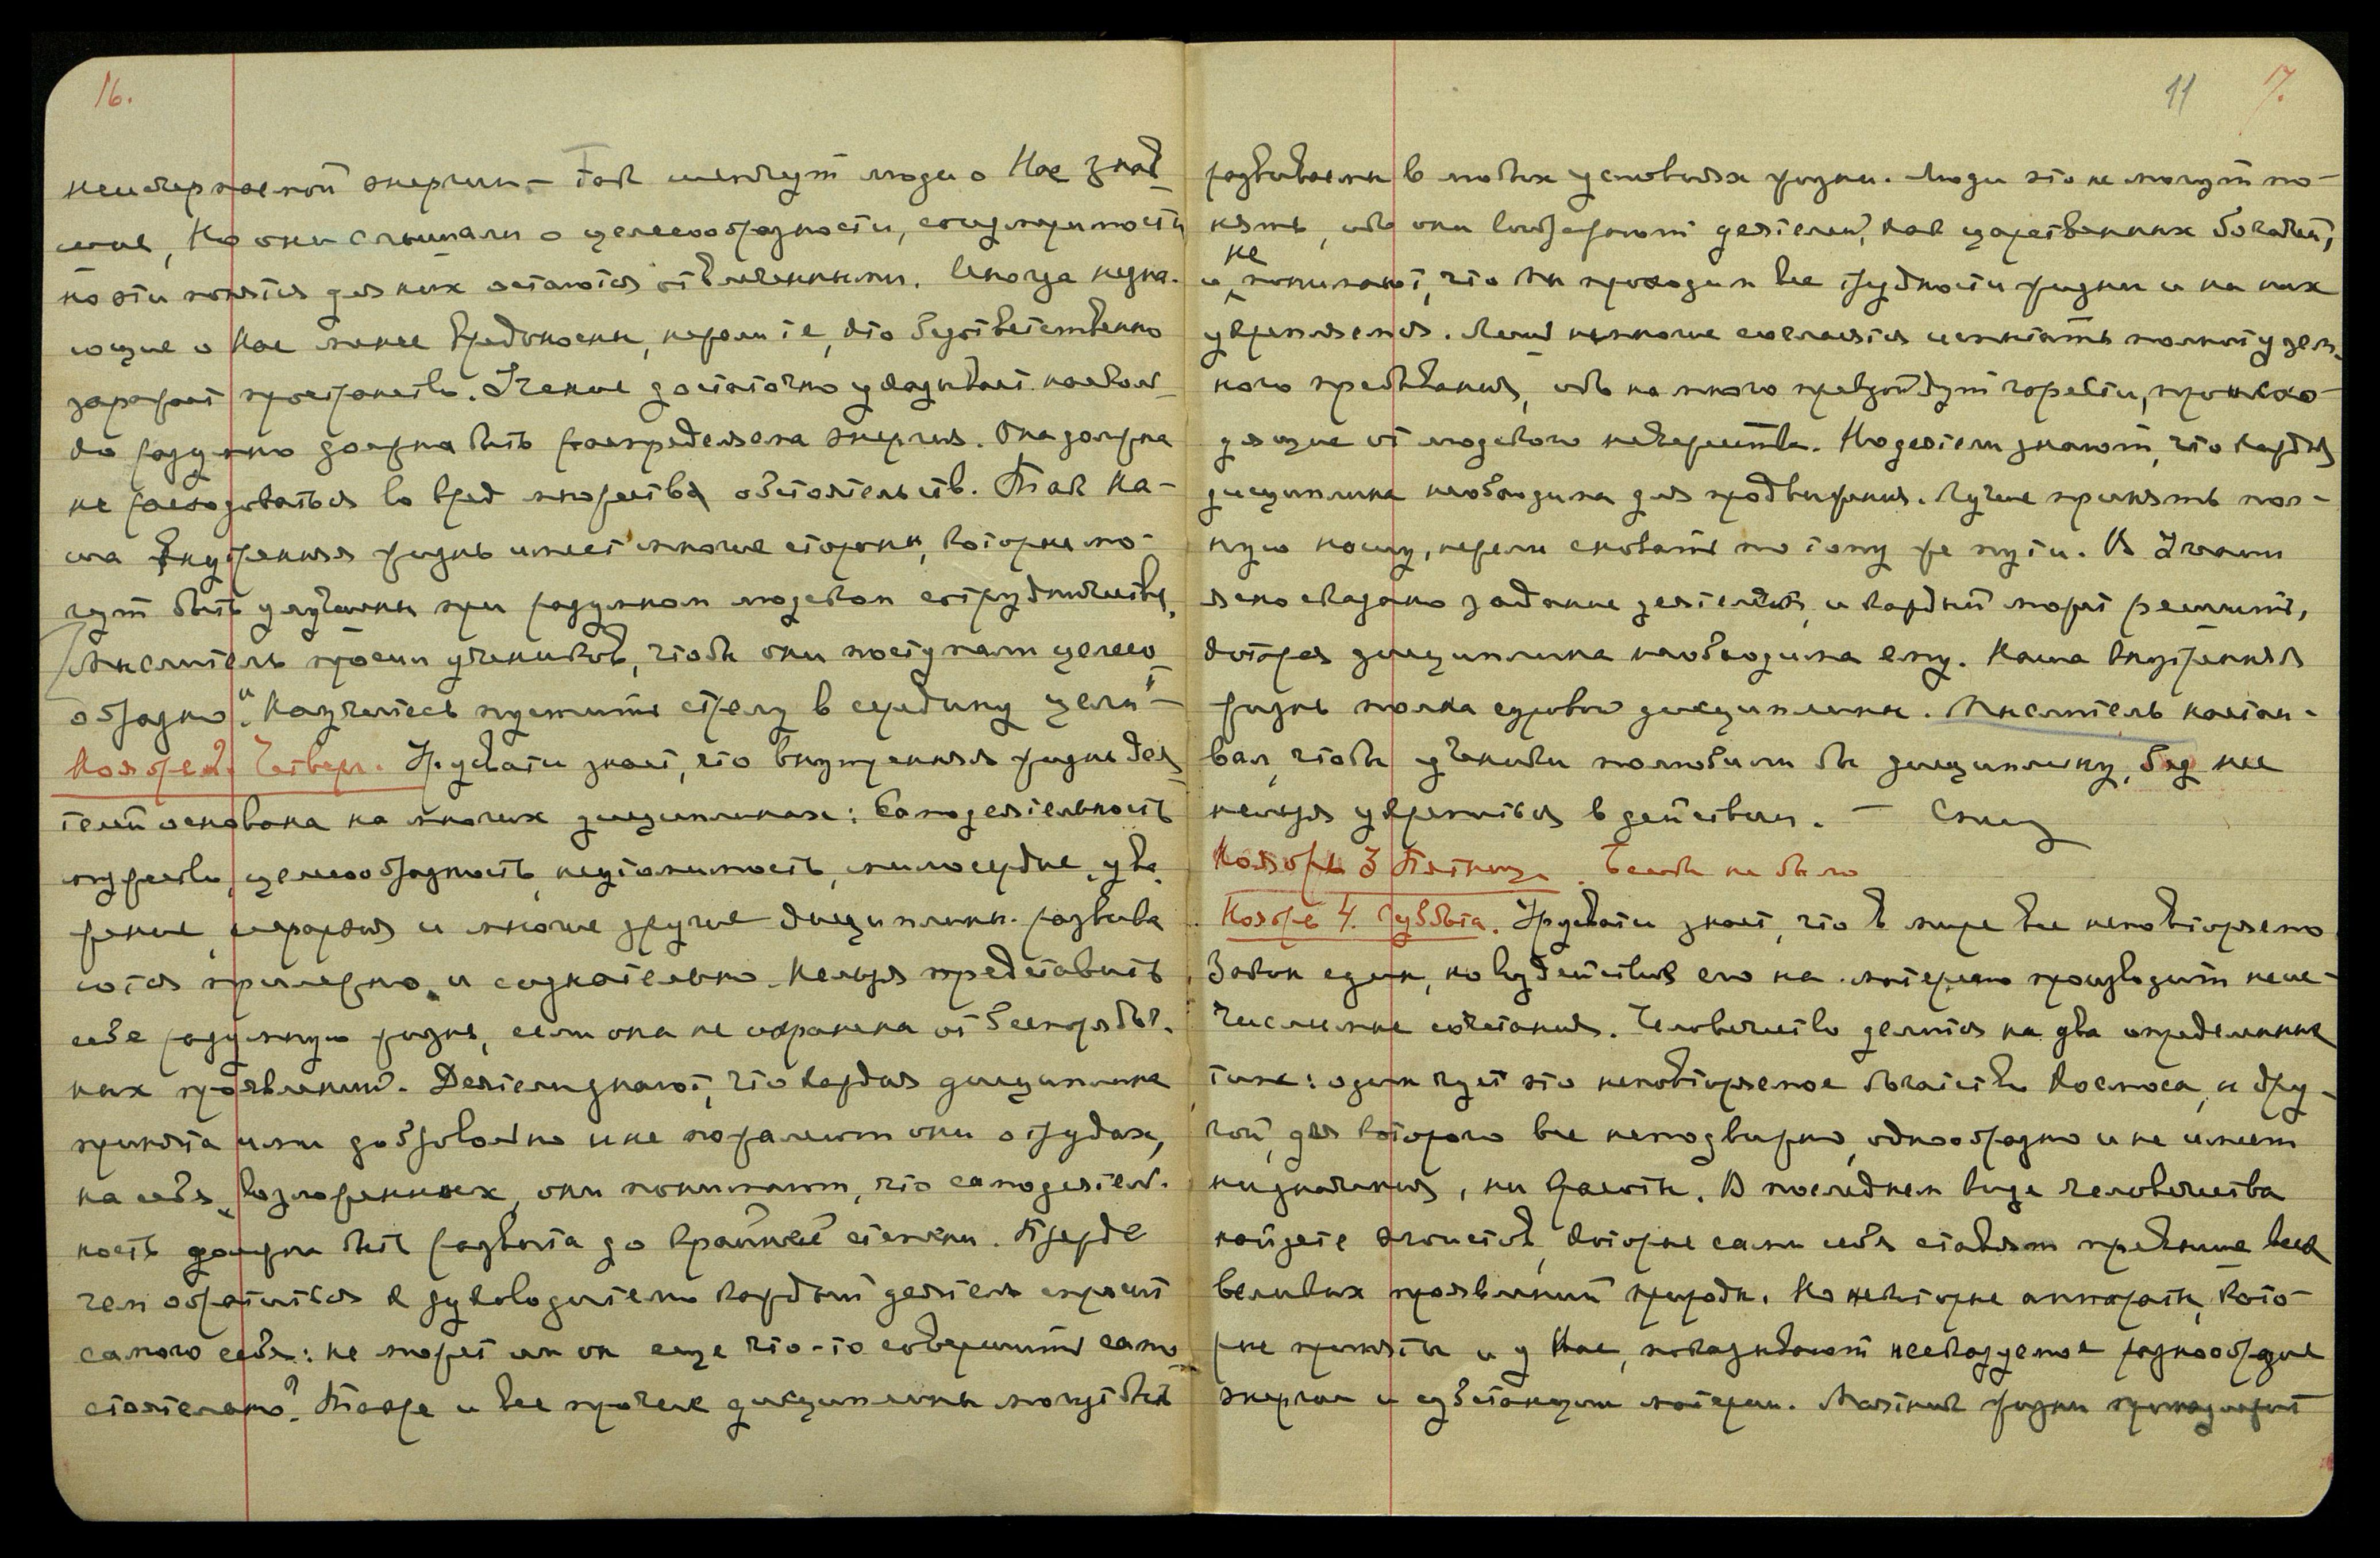 16.
неисчерпаемой энергии. — Так шепчут люди о Нас знаю-
щие, Но они слышали о целесообразности, соизмеримости
но эти понятия для них остаются отвлеченными. Иногда незна-
ющие о Нас менее вредоносны, нежели те, кто безответственно
заражает пространство. Учение достаточно указывает насколь-
ко разумно должна быть распределена энергия. Она должна
не расходоваться во вред множества обстоятельств. Так На-
ша Внутренняя жизнь имеет многие стороны, которые мо-
гут быть улучшены при разумном людском сотрудничестве,
Мыслитель просил учеников, чтобы они поступали целесо-
образно. "Научитесь пустить стрелу в середину цели" —
Ноябрь 2. Четверг. Урусвати знает, что внутренняя жизнь дея-
телей основана на многих дисциплинах: Самодеятельность
мужество, целесообразность, неутомимость, милосердие, ува-
жение, иерархия и многие другие дисциплины развива-
ются прилежно и сознательно. Нельзя представить
себе разумную жизнь, если она не охранена от беспорядоч-
ных проявлений. Деятели знают, что каждая дисциплина
принята ими добровольно и не пожалеют они о трудах,
на себя возложенных, они понимают, что самодеятель-
ность должна быть развита до крайней степени. Прежде
чем обратиться к руководителю каждый деятель спросит
самого себя: не может ли он еще что-то совершить само-
стоятельно? Также и все прочие дисциплины могут быть
11 17.
развиваемы в любых условиях жизни. Люди это не могут по-
нять, ибо они воображают деятелей, как царственных богачей,
и не понимают, что Мы проходим все трудности жизни и на них
укрепляемся. Лишь немногие согласятся испытать полноту зем-
ного пребывания, ибо на много превзойдут горести, происхо-
дящие от людского невежества. Но деятели знают, что каждая
дисциплина необходима для продвижения. Лучше принять пол-
ную ношу, нежели сновать по тому же пути. В Учении
ясно сказано задание деятелей, и каждый может решить,
которая дисциплина необходима ему. Наша Внутренняя
жизнь полна суровой дисциплины. Мыслитель настаи-
вал, чтобы ученики полюбили бы дисциплину, без нее
нельзя укрепиться в действии. —
Ноябрь 3 Пятница. Беседы не было
Ноябрь 4. Суббота. Урусвати знает, что в мире все неповторяемо
Закон един, но воздействие его на материю производит неис-
численные сочетания. Человечество делится на два определенных
типа: один чует это неповторяемое богатство Космоса, и дру-
гой, для которого все неподвижно, однообразно и не имеет
ни значения, ни красоты. В последнем виде человечества
найдете эгоистов, которые сами себя ставят превыше всех
великих проявлений природы. Но некоторые аппараты, кото-
рые приняты и у Нас, показывают несказуемое разнообразие
энергии и субстанции материи. Маятник жизни принадлежит